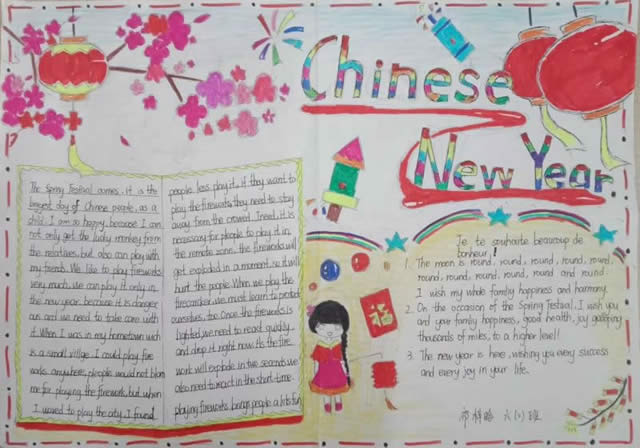 Chinese
New Year
The Spring Festival comes, it is the
biggest day of Chinese people, as a
child I am so happy, because I can
not only get the lucky monkey from
the relartives, but also can play with
my friends. We like to play fireworks
very much, we can play it only in
the new year, because it is danger
ous and we need to take care with
it. When I was in my hometown wich
is a small villge I could play fire
works anywhere, people would not blam
me for playing the firework, but when
I moved to play the city, I found
people less play it, if they want to
play the fireworks they need to stay
away from the crowed. Ineed, it is
necessary for people to play it in
the remote zone, the fireworks will
get exploded in a moment, so it will
hurt the people. When we play the
firecracker, we must learn to protect
ourselves, too. Once the firework is
lighted, we need to react quickly
and drop it right now. Its the fire
work will explode in two seconds we
also need to react in the short time.
playing fireworks brings people a lots fun
Je te souhaite beaucoup de
bonheur!
1. The moon is round, round, round, round, round,
round, round, round, round, round and round.
I wish my whole family happiness and harmony.
2. On the occasion of the Spring Festival, I wish you
and your family happiness, good health, joy galloping
thousands of miles, to a higher level!
3. The new year is here, wishing you every success
and every joy in your life.
福
六(1)班